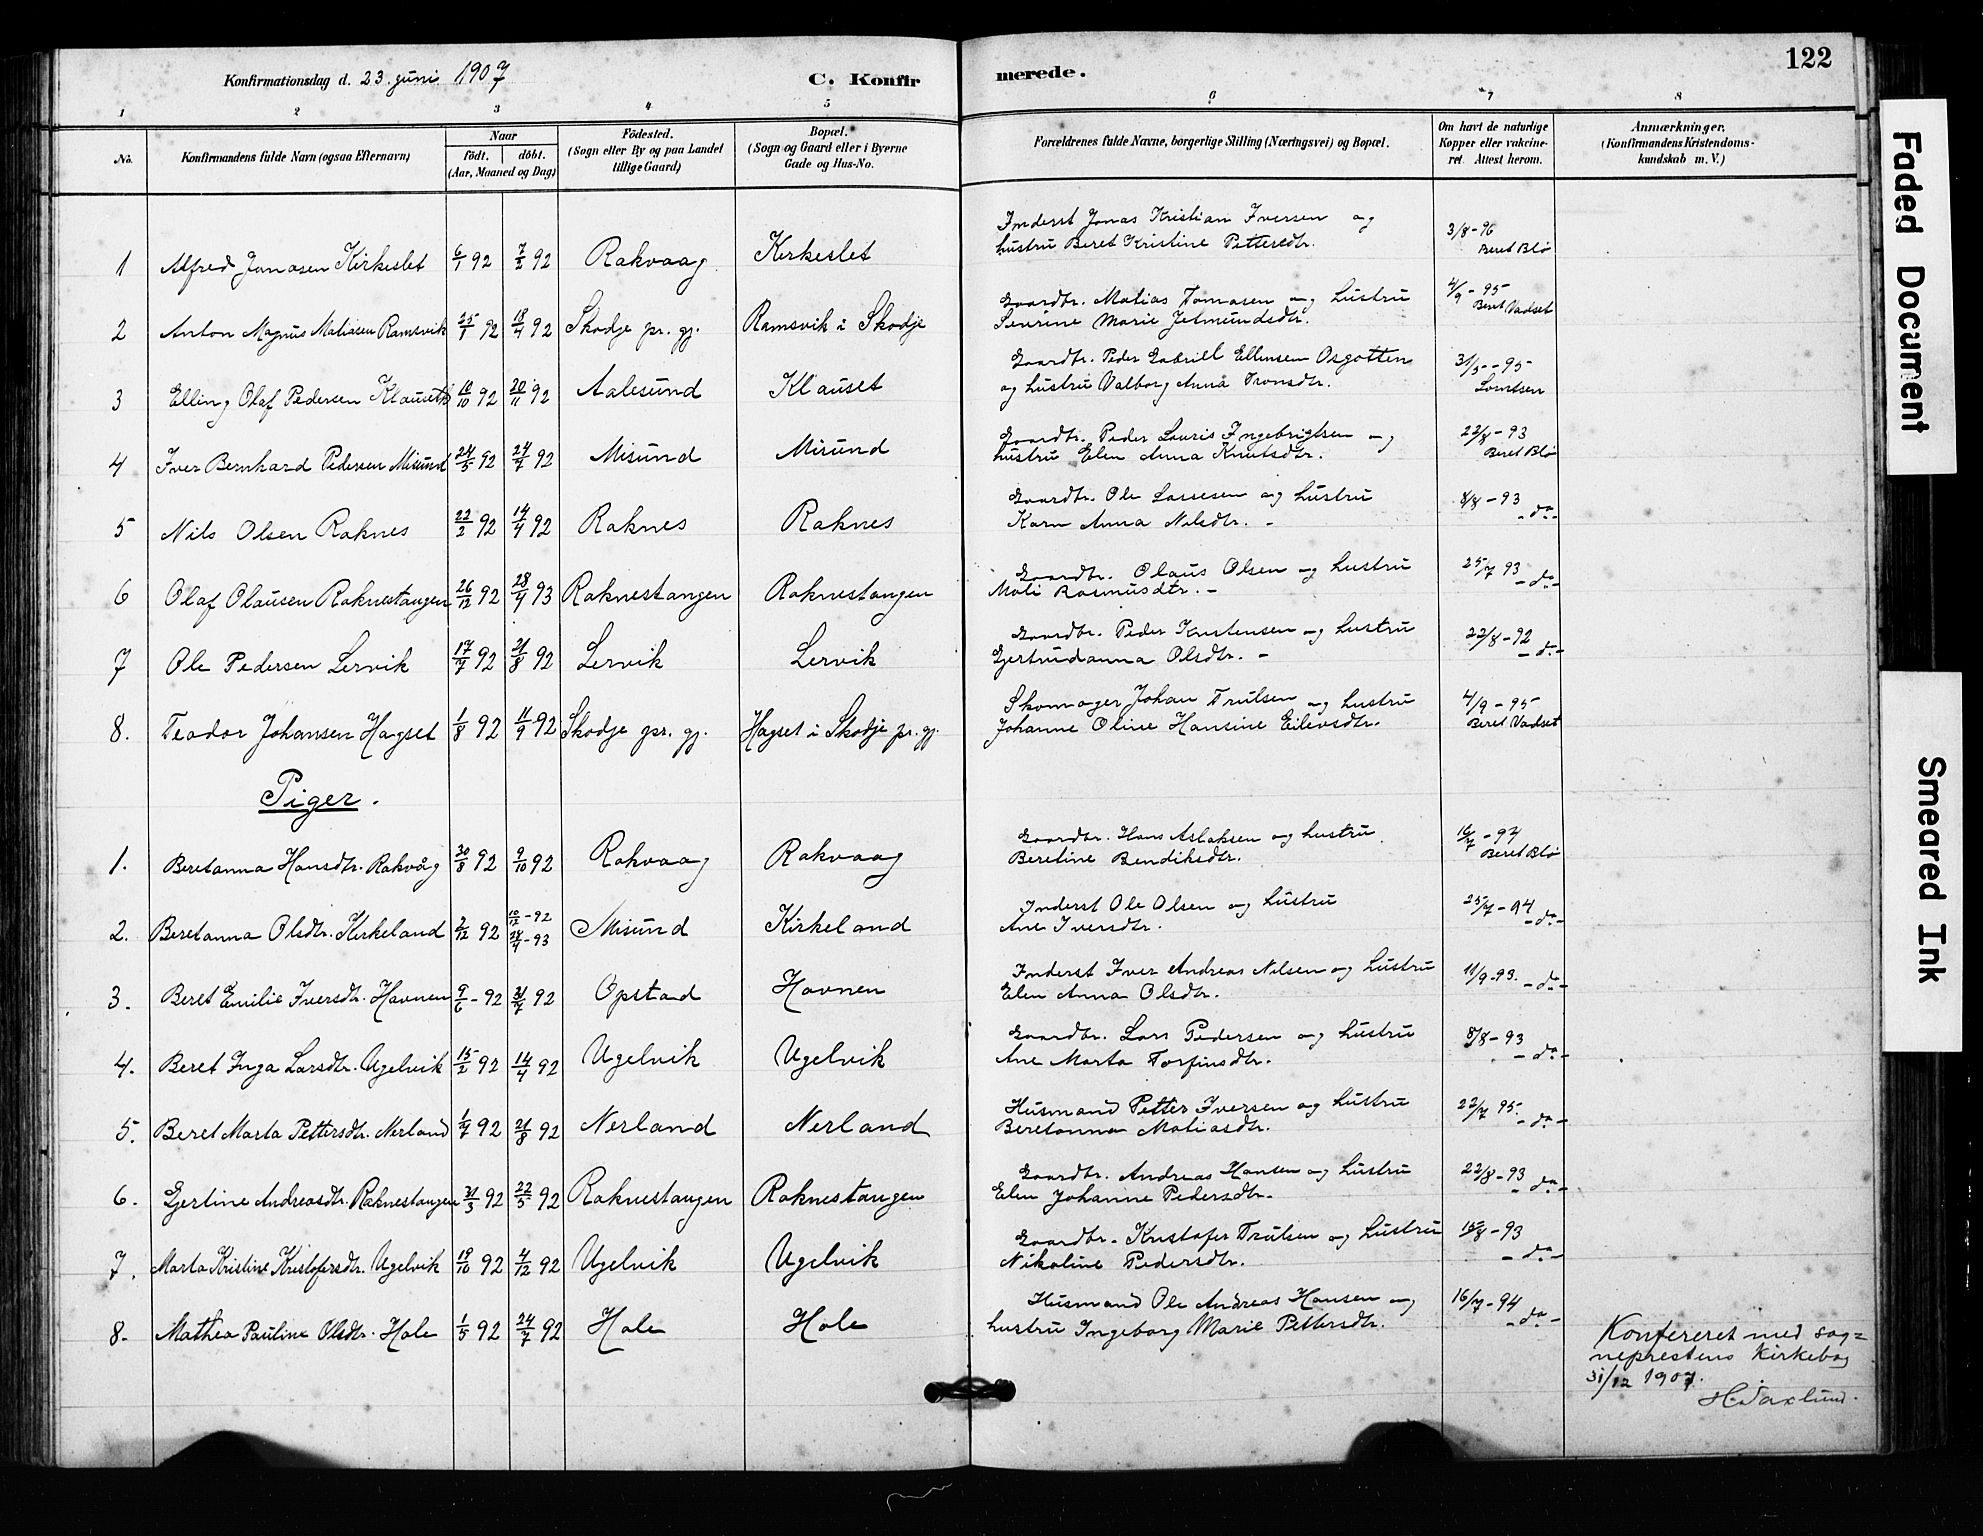 122
Konfirmationsdag d. 23. juni 1907 C. Konfirmerede.
1 2 3 4 5 6 7 8
No. | Konfirmandens fulde Navn (ogsaa Efternavn) | Naar födt. döbt. (Aar, Maaned og Dag) | Födested. (Sogn eller By og paa Landet tillige Gaard) | Bopæl. (Sogn og Gaard eller i Byerne Gade og Hus-No. | Forældrenes fulde Navne, borgerlige Stilling (Næringsvei) og Bopæl. | Om havt de naturlige Kopper eller vakcineret. Attest herom. | Anmærkninger. (Konfirmandens Kristendomskundskab m. V.)
1 Alfred Jonasen Kirkeslet 6/1 92 7/2 92 Rakvaag Kirkeslet Inderst Jonas Kristian Iversen og hustru Beret Kristine Pettersdtr. 3/8-96 Beret Blø
2 Anton Magnus Matiasen Ramsvik 25/1 92 18/4 92 Skodje pr. gj. Ramsvik i Skodje Gaardbr. Matias Tomasen og hustru Sevrine Marie Jetmundsdtr. 4/9-95 Beret Vadset
3 Elling Olaf Pedersen Klauseth 10/10 92 20/11 92 Aalesund Klauset Gaardbr. Peder Gabriel Ellensen Osgotten og hustru Valborg Anna Tronsdtr. 31/5-95 Lorntsen
4 Iver Bernhard Pedersen Misund 24/5 92 24/7 92 Misund Misund Gaardbr. Peder Lauris Ingebrigtsen og hustru Elen Anna Knutsdtr. 22/8-93 Beret Blø
5 Nils Olsen Raknes 22/2 92 14/4 92 Raknes Raknes Gaardbr. Ole Lassesen og hustru Karn Anna Nilsdtr. - 8/8-93 - do -
6 Olaf Olausen Raknestangen 26/12 92 28/4 93 Raknestangen Raknestangen Gaardbr. Olaus Olsen og hustru Mali Rasmusdtr. - 25/7 93 - do -
7 Ole Pedersen Lervik 17/7 92 21/8 92 Lervik Lervik Gaardbr. Peder Kristensen og hustru Gjertrudanna Olsdtr. - 22/8-92 - do -
8. Teodor Johansen Hagset 1/8 92 11/9 92 Skodje pr. gj. Hagset i Skodje pr. gj. Skomager Johan Trulsen og hustru Johanne Oline Hansine Eilevsdtr. 4/9-95 Beret Vadset
Piger.
1. Beretanna Hansdtr. Rakvåg 30/8 92 9/10 92 Rakvaag Rakvaag Gaardbr. Hans Aslaksen og hustru Beretine Bendiksdtr. 16/7-94 Beret Blø
2. Beretanna Olsdtr. Kirkeland 2/12 92 10/12-92 28/4-93 Misund Kirkeland Inderst Ole Olsen og hustru Ane Iversdtr. 25/7-94 - do -
3. Beret Emilie Iversdtr. Havnen 9/6-92 31/7 92 Opstad Havnen Inderst Iver Andreas Nilsen og hustru Elen Anna Olsdtr. 11/9-93. - do -
4. Beret Inga Larsdtr. Ugelvik 15/2 92 14/4 92 Ugelvik Ugelvik Gaardbr. Lars Pedersen og hustru Ane Marta Torfinsdtr. 8/8-93 - do -
5. Beret Marta Pettersdtr. Nerland 1/7 92 21/8 92 Nerland Nerland Husmand Petter Iversen og hustru Beretanna Matiasdtr. 22/7 95. - do -
6. Gjertine Andreasdtr. Raknestangen 31/3 92 22/5 92 Raknestangen Raknestangen Gaardbr. Andreas Hansen og hustru Elen Johanne Pedersdtr. 22/8-93 - do -
7. Marta Kristine Kristofersdtr. Ugelvik 19/10 92 4/12 92 Ugelvik Ugelvik Gaardbr. Kristofer Trulsen og hustru Nikoline Pedersdtr. 15/8-93 - do -
8. Mathea Pauline Olsdtr. Hole 1/5 92 24/7 92 Hole Hole Husmand Ole Andreas Hansen og hustru Ingeborg Marie Pettersdtr. 16/7-94 - do -
Konfereret med sog=
neprestens Kirkebog
31/12 1907.
H. Saxlund.
Faded Document
Smeared Ink